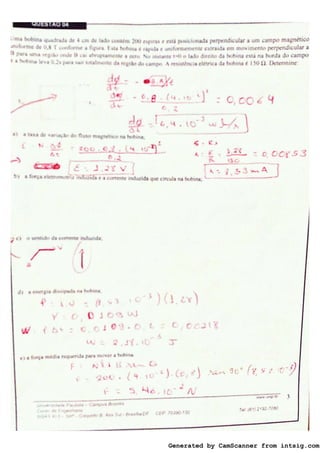 QUESTÃO 04
Uma bobina quadrada de 4 cm de lado contém 200 espiras e está posicionada perpendicular a um campo magnético
uniforme de 0,8 T conforme a figura. Esta bobina é rápida e uniformemente extraida em movimento perpendicular a
B para uma região onde B cai abruptamente a zero. No instante t=0 o lado direito da bobina está na borda do campo
e a bobina leva 0,2s para sair totalmente da região do campo. A resistência elétrica da bobina é 150 Ω. Determine:
dφ/dt = -
dφ/dt = - 0,8 . (4.10⁻²)² / 0,2 = 0,0064
dφ/dt = 6,4 . 10⁻³ W/s
a) a taxa de variação do fluxo magnético na bobina;
ε = 200 . 0,8 . (4.10⁻²)² / 0,2
= 0,00853
ε = 1,28 V
i = 8,53 mA
b) a força eletromotriz induzida e a corrente induzida que circula na bobina;
c) o sentido da corrente induzida;
d) a energia dissipada na bobina;
P = i.U = (8,53 . 10⁻³) (1,28)
P = 0,0109 W
W = P.Δt = 0,0109 . 0,2 = 0,00218
W = 2,18 . 10⁻³ J
e) a força média requerida para mover a bobina.
F = 200 . (4.10⁻²) . (0,8) sen 90° (8,53.10⁻³)
F = 5,46 . 10⁻² N
3
Universidade Paulista - Campus Brasília
Curso de Engenharia
Generated by CamScanner from intsig.com